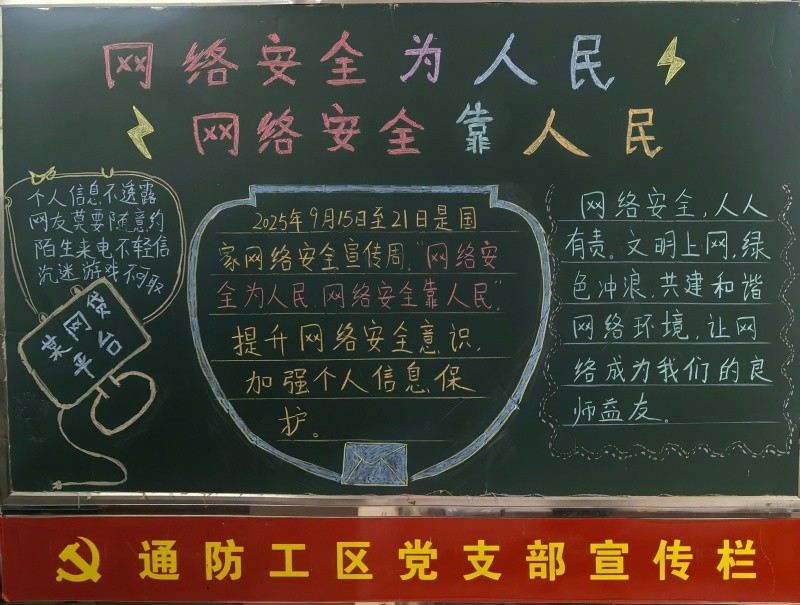 网络安全为人民
网络安全靠人民
个人信息不透露
网友莫要随意约
陌生来电不轻信
沉迷游戏不可取
某网贷
平台
2025年9月15日至21日是国
家网络安全宣传周,“网络安
全为人民 网络安全靠人民”,
提升网络安全意识,
加强个人信息保
护。
网络安全,人人
有责。文明上网,绿
色冲浪,共建和谐
网络环境,让网
络成为我们的良
师益友。
通防工区党支部宣传栏